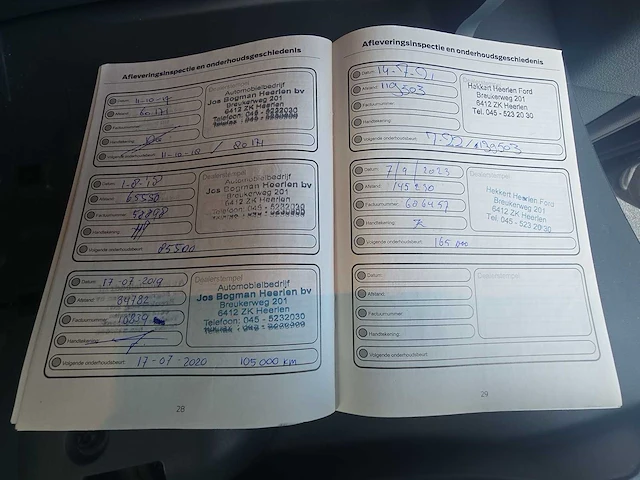 Afleveringsinspectie en onderhoudsgeschiedenis
Datum: 11-10-17
Afstand: 60.171
Factuurnummer:
Handtekening:
Volgende onderhoudsbeurt: 11-10-18 / 80171
Dealerstempel
Automobielbedrijf
Jos Bogman Heerlen bv
Breukerweg 201
6412 ZK Heerlen
Telefoon: 045 - 5232030
Datum: 1-8-18
Afstand: 65550
Factuurnummer:
Handtekening:
Volgende onderhoudsbeurt: 85500
Dealerstempel
Automobielbedrijf
Jos Bogman Heerlen bv
Breukerweg 201
6412 ZK Heerlen
Telefoon: 045 - 5232030
Datum: 17-07-2019
Afstand: 84782
Factuurnummer:
Handtekening:
Volgende onderhoudsbeurt: 17-07-2020 105000 km
Dealerstempel
Automobielbedrijf
Jos Bogman Heerlen bv
Breukerweg 201
6412 ZK Heerlen
Telefoon: 045 - 5232030
28
Afleveringsinspectie en onderhoudsgeschiedenis
Datum: 14-7-21
Afstand: 119503
Factuurnummer:
Handtekening:
Volgende onderhoudsbeurt: 7-522 / 139503
Hekkert Heerlen Ford
Breukerweg 201
6412 ZK Heerlen
Tel. 045 - 523 20 30
Datum: 7/9/2023
Afstand: 145230
Factuurnummer: 606457
Handtekening:
Volgende onderhoudsbeurt: 165 000
Dealerstempel
Hekkert Heerlen Ford
Breukerweg 201
6412 ZK Heerlen
Tel. 045 - 523 20 30
Datum:
Afstand:
Factuurnummer:
Handtekening:
Volgende onderhoudsbeurt:
Dealerstempel
29